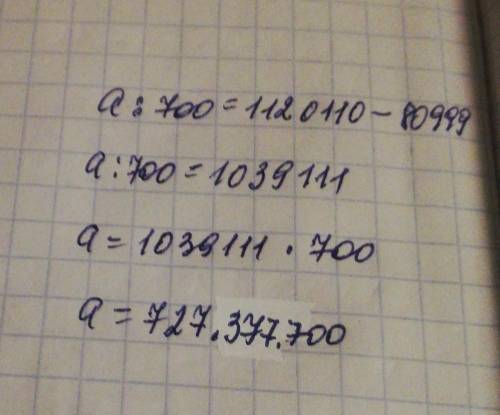 a : 700 = 1120110 - 80999
a : 700 = 1039111
a = 1039111 · 700
a = 727.377.700